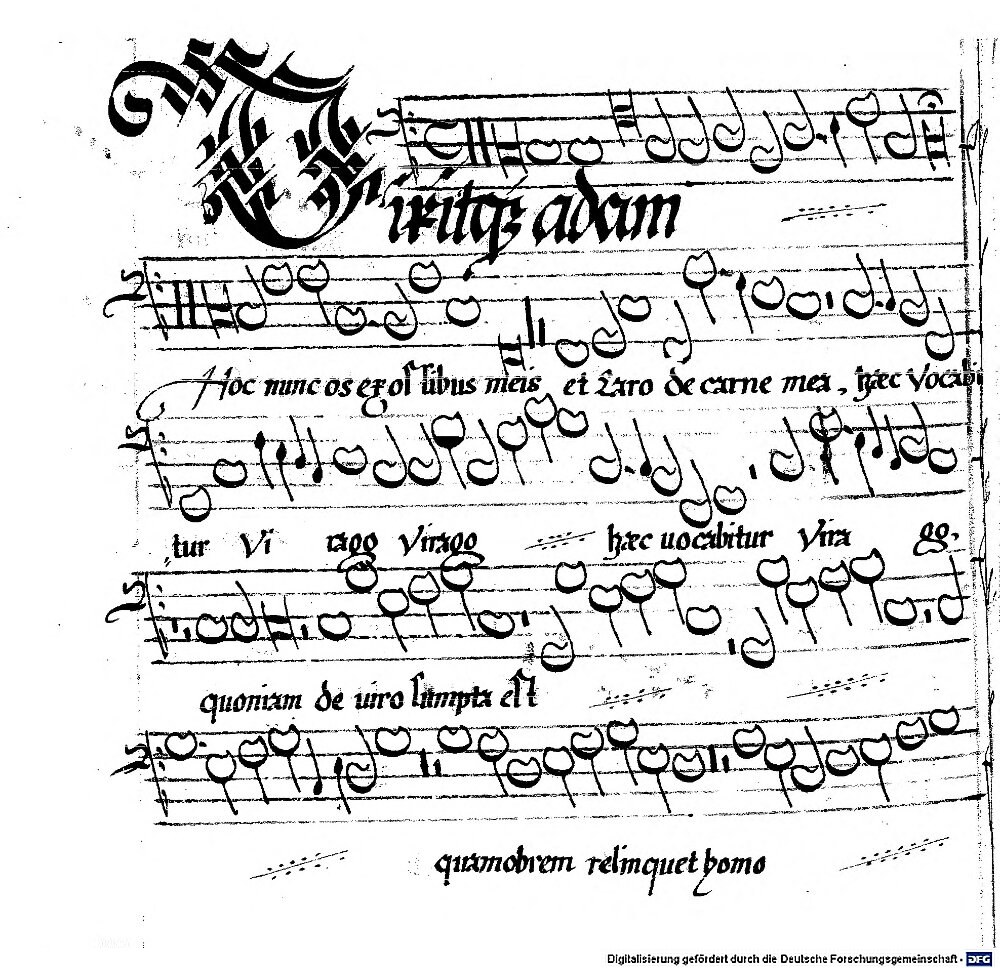 Dixitq3 adam
Hoc nunc os ex ossibus meis et caro de carne mea, hæc vocabi
tur Vi rago Virago hæc uocabitur Vira go.
quoniam de uiro sumpta est
quamobrem relinquet homo
Digitalisierung gefördert durch die Deutsche Forschungsgemeinschaft - DFG